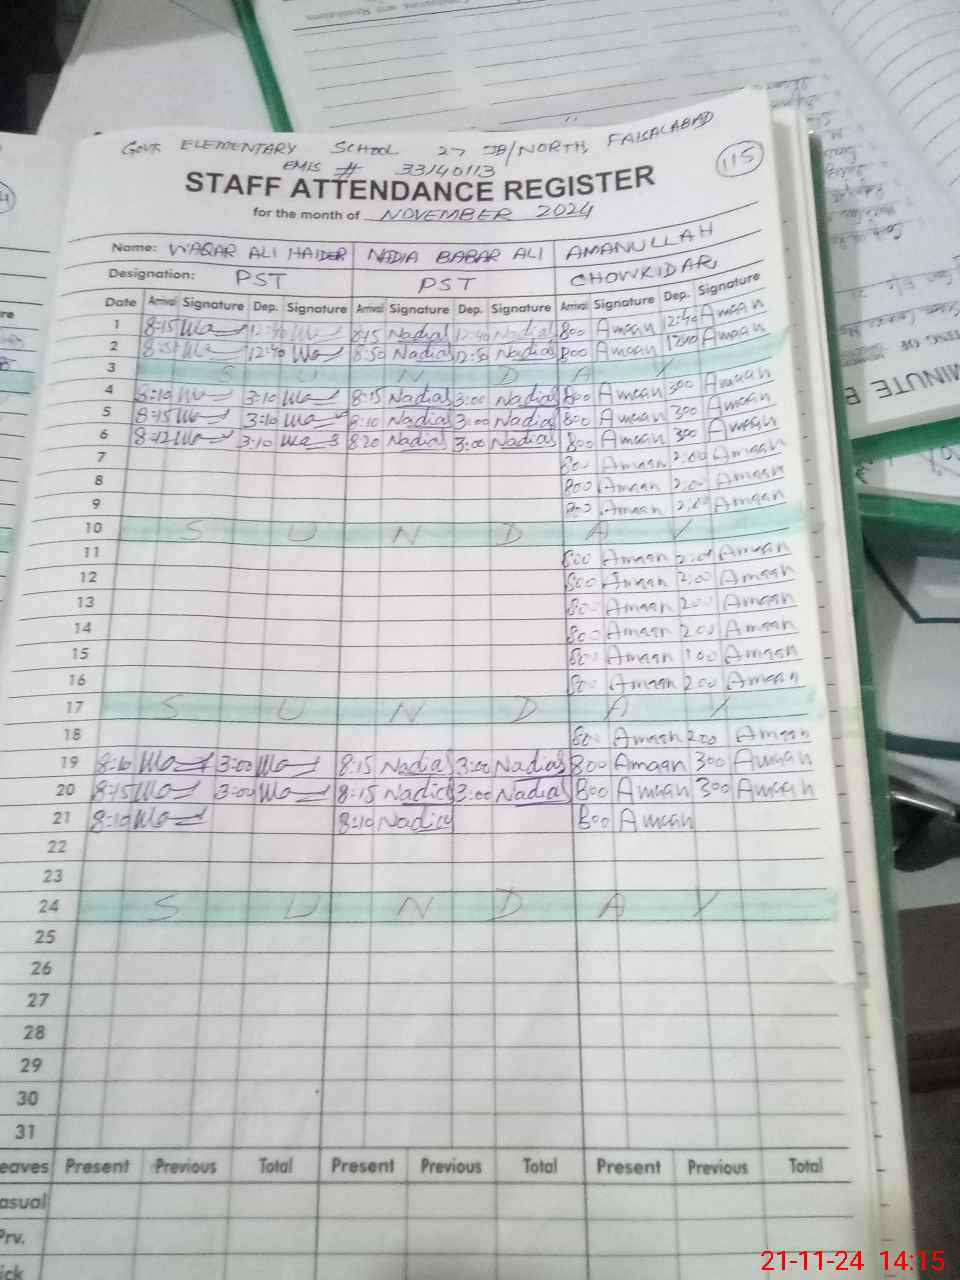 GOVT. ELEMENTARY SCHOOL 27 JB/NORTH, FAISALABAD
EMIS # 33140113
115
STAFF ATTENDANCE REGISTER
for the month of NOVEMBER 2024
Name: WAQAR ALI HAIDER NADIA BABAR ALI AMANULLAH
Designation: PST PST CHOWKIDAR
Date Arrival Signature Dep. Signature Arrival Signature Dep. Signature Arrival Signature Dep. Signature
1 8:15 Wa 12:40 Wa 8:15 Nadia 12:40 Nadia 800 Amaan 12:40 Amaan
2 Wa 12:40 Wa 8:50 Nadia 12:50 Nadia 800 Amaan Amaan
3 S U N D A Y
4 8:10 Wa 3:10 Wa 8:15 Nadia 3:00 Nadia 800 Amaan 300 Amaan
5 8:15 Wa 3:10 Wa 8:10 Nadia 3:00 Nadia 800 Amaan 300 Amaan
6 8:12 Wa 3:10 Wa 8:20 Nadia 3:00 Nadia 800 Amaan 300 Amaan
7 800 Amaan 2:00 Amaan
8 800 Amaan 2:00 Amaan
9 800 Amaan 2:00 Amaan
10 S U N D A Y
11 800 Amaan 2:00 Amaan
12 800 Amaan 2:00 Amaan
13 800 Amaan 200 Amaan
14 800 Amaan 200 Amaan
15 800 Amaan 100 Amaan
16 800 Amaan 200 Amaan
17 S U N D A Y
18 800 Amaan 200 Amaan
19 8:10 Wa 3:00 Wa 8:15 Nadia 3:00 Nadia 800 Amaan 300 Amaan
20 8:15 Wa 3:00 Wa 8:15 Nadia 3:00 Nadia 800 Amaan 300 Amaan
21 8:10 Wa 8:10 Nadia 800 Amaan
22
23
24 S U N D A Y
25
26
27
28
29
30
31
eaves Present Previous Total Present Previous Total Present Previous Total
asual
Prv.
ick
MINUTE B
TING OF
21-11-24 14:15